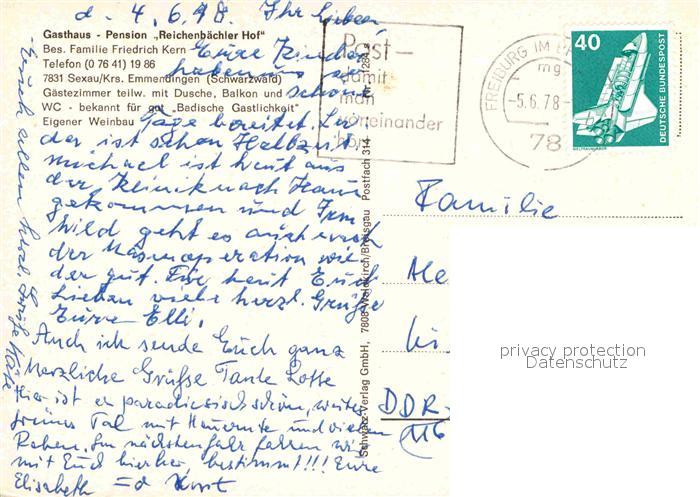 d. 4.6.78. Ihr Lieben,
Gasthaus - Pension „Reichenbächler Hof"
Bes. Familie Friedrich Kern
Telefon (0 76 41) 19 86
7831 Sexau/Krs. Emmendingen (Schwarzwald)
Gästezimmer teilw. mit Dusche, Balkon und
WC - bekannt für gut „Badische Gastlichkeit"
Eigener Weinbau
Eure Kinder
haben uns
schöne
Tage bereitet. Lei
der ist schon Halbzeit.
Michael ist heut aus
der Klinik nach Haus
gekommen und Irm
hild geht es auch nach
der operation wie
der gut. Für heut Euch
Lieben viele herzl. Grüße
Eure Elli.
Auch ich sende Euch ganz
herzliche Grüße Tante Lotte
Hier ist es paradiesisch schön, weites
grünes Tal mit und vielen
Im nächsten Jahr fahren wir
mit Euch hierher, bestimmt!!! Eure
Elisabeth und Horst
Euch allen herzl. Grüße
Schwarz-Verlag GmbH, 7808 Waldkirch/Breisgau Postfach 314
Post-
damit
man
voneinander
hört
FREIBURG IM
mg
-5.6.78-
78
40
DEUTSCHE BUNDESPOST
WELTRAUMLABOR
Familie
DDR-
116
privacy protection
Datenschutz